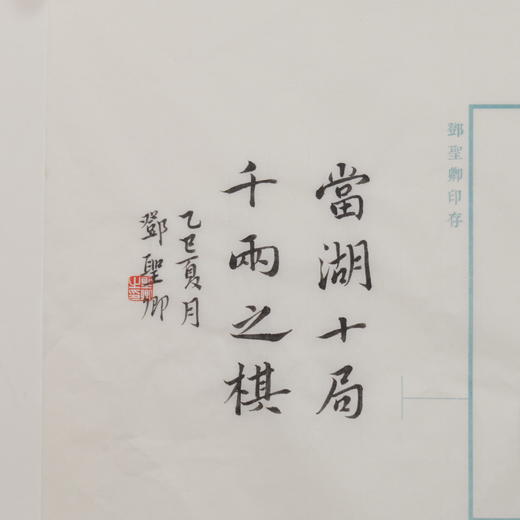 鄧聖卿印存
當湖十局
千兩之棋
乙巳夏月
鄧聖卿